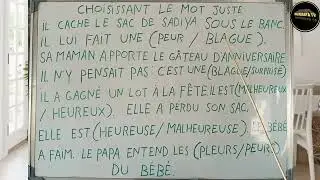 CHOISISSANT LE MOT JUSTE:
IL CACHE LE SAC DE SADIYA SOUS LE BANC.
IL LUI FAIT UNE (PEUR / BLAGUE).
SA MAMAN APPORTE LE GÂTEAU D'ANNIVERSAIRE
IL N'Y PENSAIT PAS C'EST UNE (BLAGUE/SURPRISE)
IL A GAGNÉ UN LOT À LA FÊTE IL EST (MALHEUREUX
/ HEUREUX). ELLE A PERDU SON SAC,
ELLE EST (HEUREUSE / MALHEUREUSE). BÉBÉ
A FAIM. LE PAPA ENTEND LES (PLEURS/PEURS)
DU BÉBÉ.